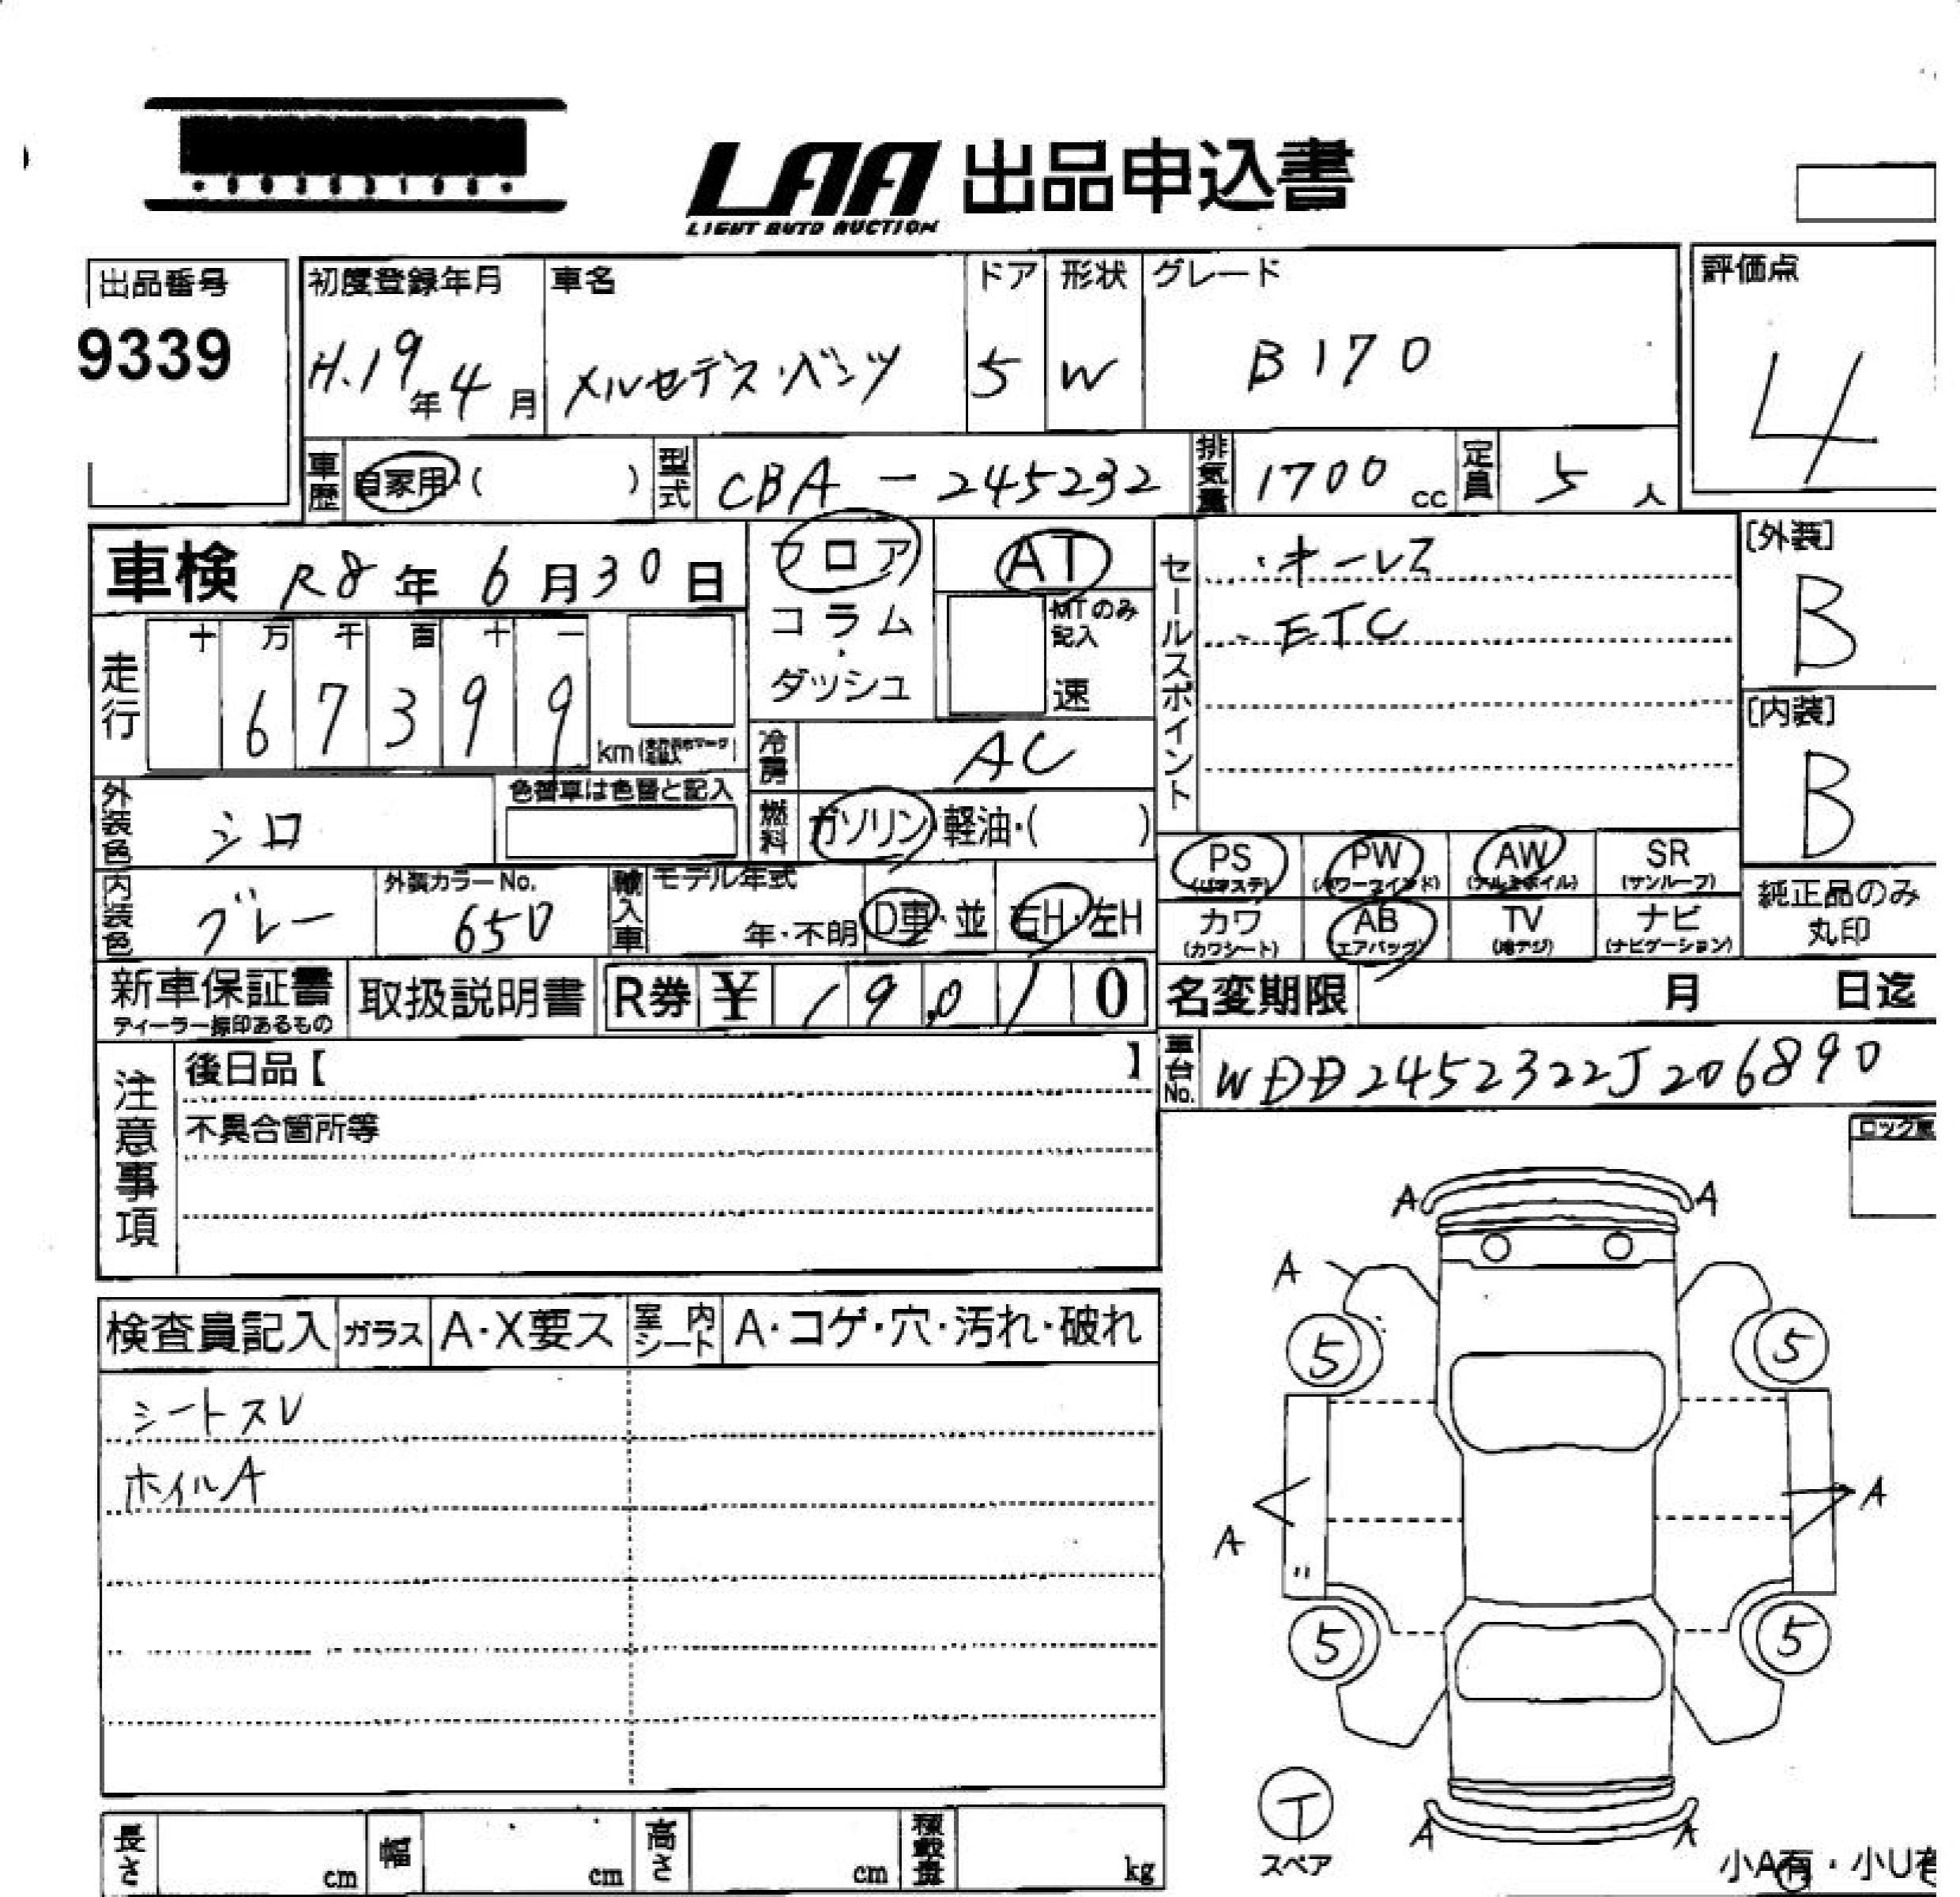 LAA 出品申込書
LIGHT AUTO AUCTION
出品番号
9339
初度登録年月
H.19年4月
車名
メルセデス・ベンツ
ドア
5
形状
W
グレード
B170
評価点
4
車歴 自家用・( )
型式 CBA-245232
排気量 1700cc
定員 5人
車検 R8年6月30日
フロア
コラム
・
ダッシュ
AT
MTのみ
記入
速
セールスポイント
・キーレス
・ETC
[外装]
B
[内装]
B
走行
十 万 千 百 十 一
6 7 3 9 9
km
冷房 AC
燃料 ガソリン・軽油・( )
外装色 シロ
色替車は色替と記入
内装色 グレー
外装カラーNo.
650
輸入車 モデル年式
年・不明
D車・並
右H・左H
PS
(パワステ)
PW
(パワーウインド)
AW
(アルミホイル)
SR
(サンルーフ)
カワ
(カワシート)
AB
(エアバッグ)
TV
(地デジ)
ナビ
(ナビゲーション)
純正品のみ
丸印
新車保証書
ディーラー捺印あるもの
取扱説明書
R券 ¥ 19,010
名変期限 月 日迄
注意事項
後日品【 】
不具合箇所等
車台No. WDD2452322J206890
検査員記入
ガラス A・X要ス
室内シート A・コゲ・穴・汚れ・破れ
シートスレ
ホイルA
A A
A
5 5
A A
5 5
A A
T
スペア
小A有・小U有
長さ cm
幅 cm
高さ cm
積載量 kg